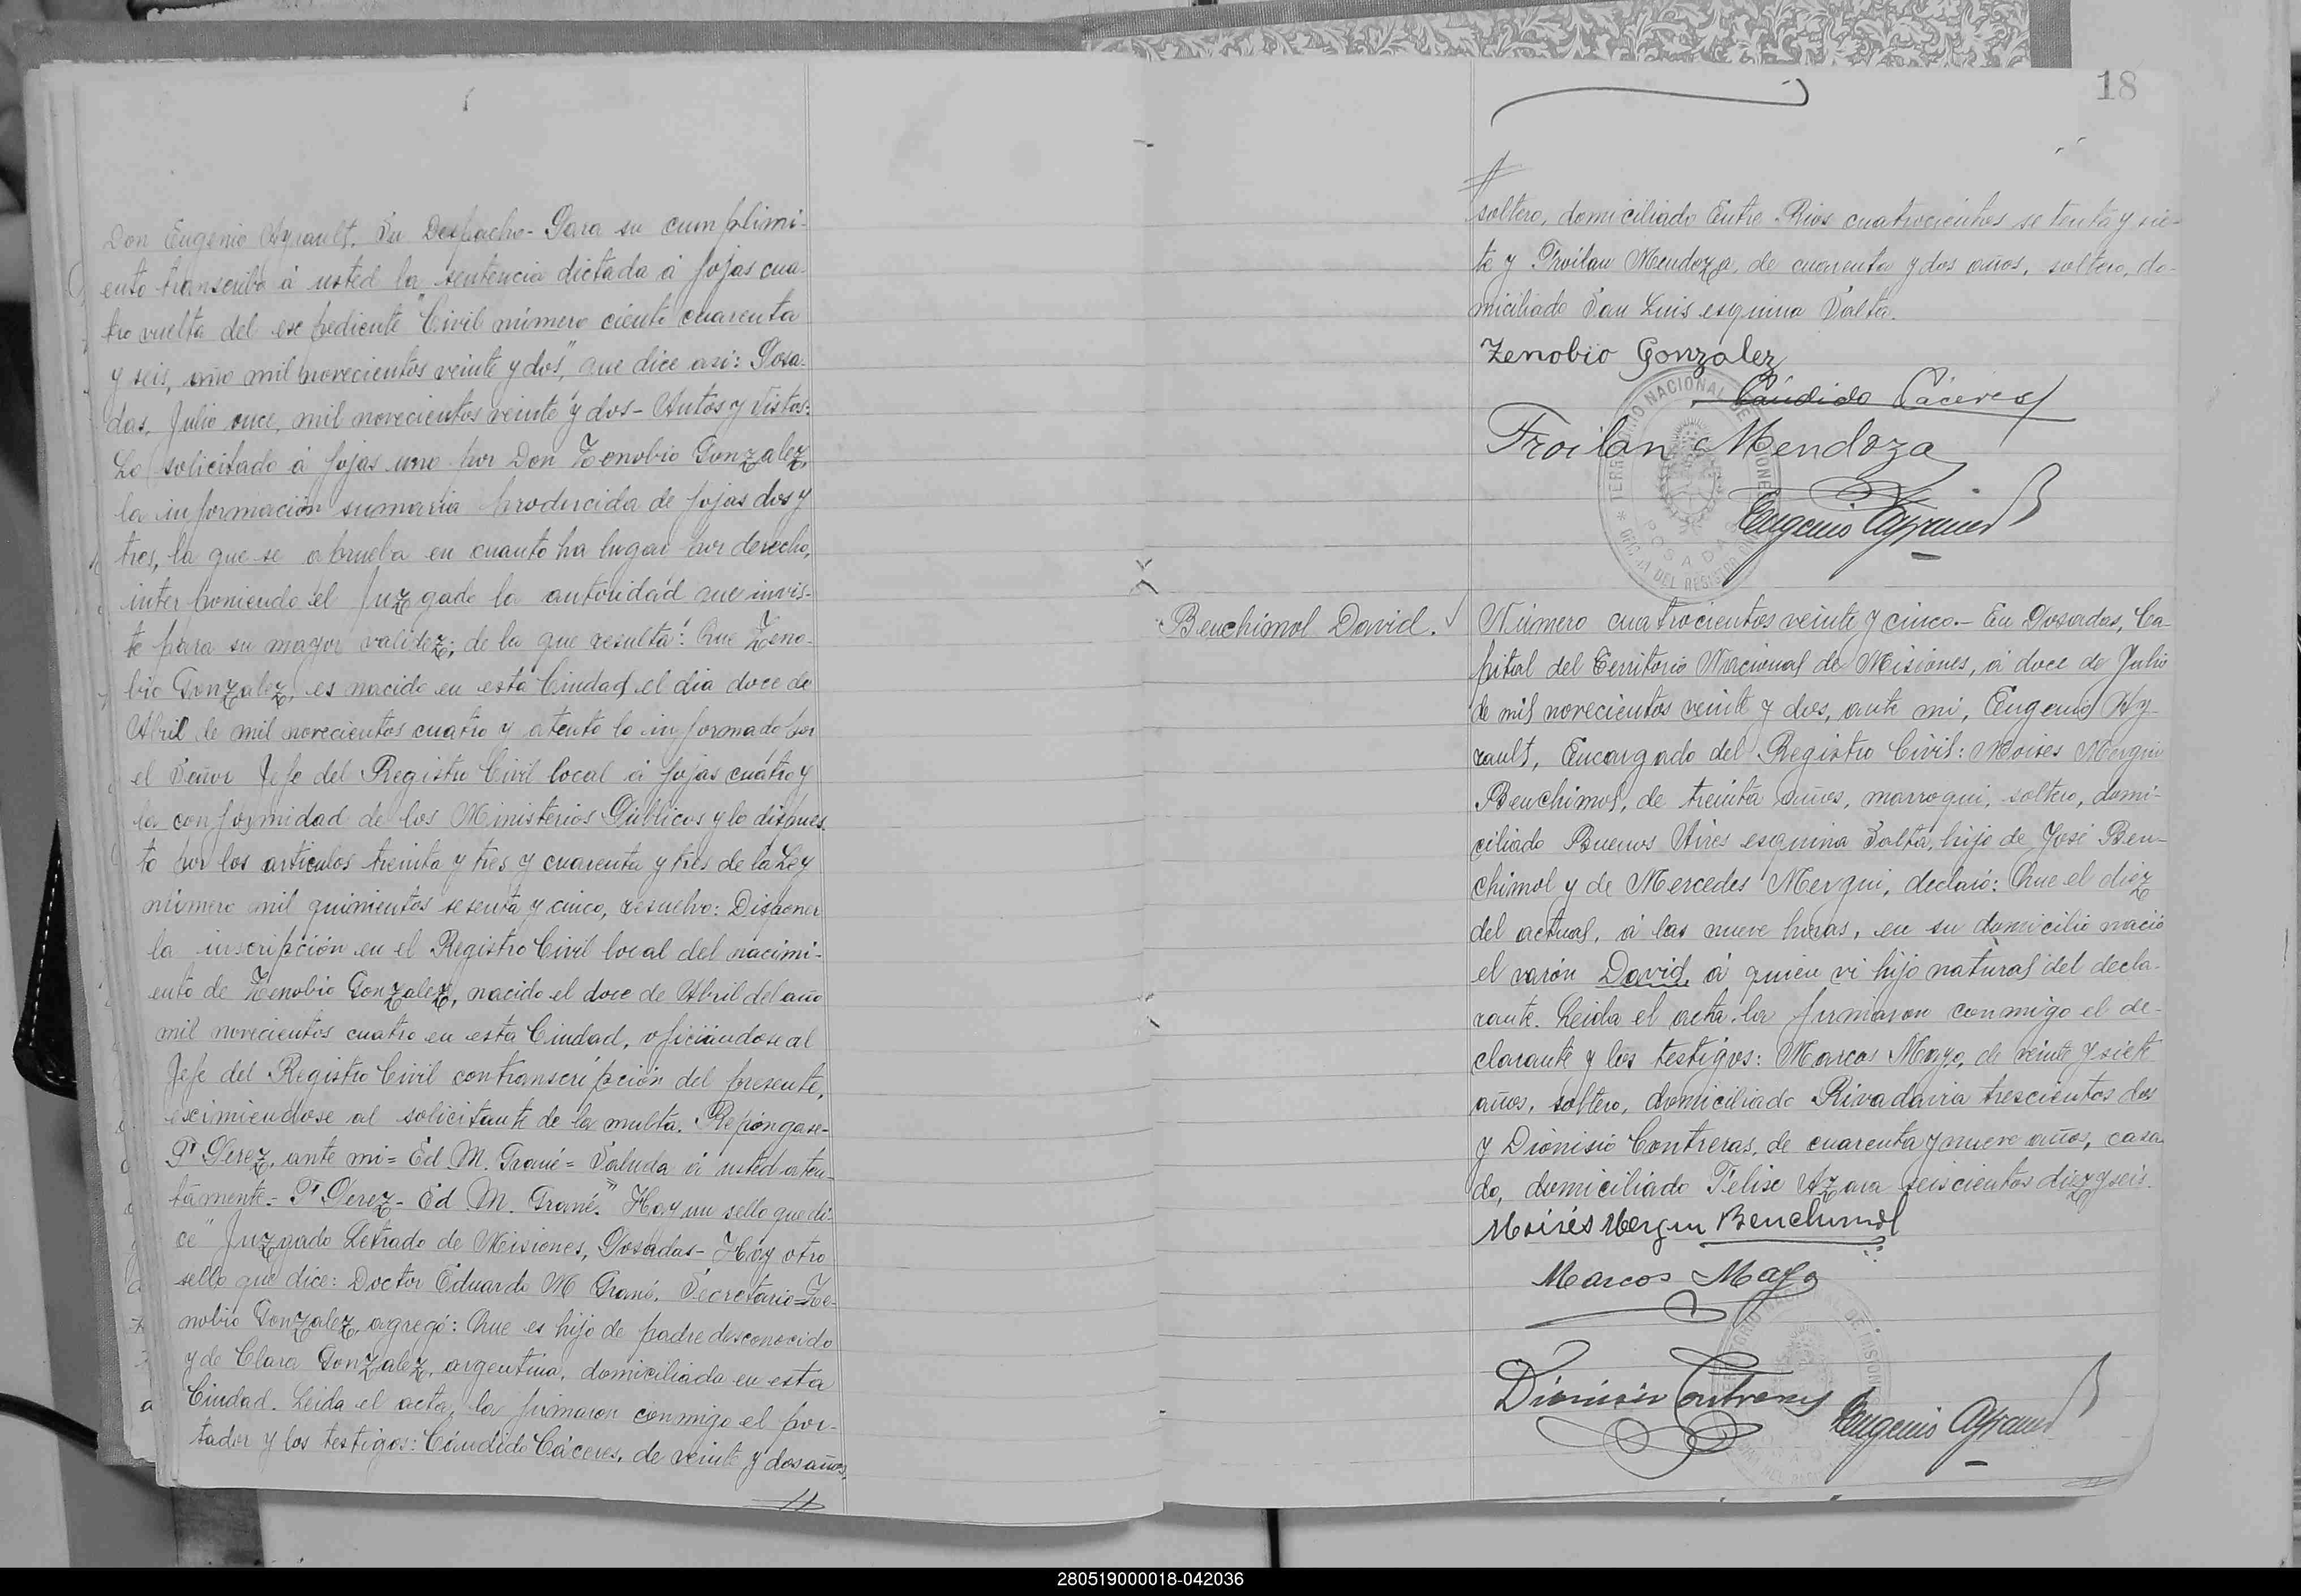 Don Eugenio Ayrault. Su Despacho - Para su cumplimi-
ento transcribo á usted la sentencia dictada á fojas cua-
tro vuelta del expediente "Civil número ciento cuarenta
y seis, año mil novecientos veinte y dos", que dice asi: Posa-
das, Julio once, mil novecientos veinte y dos - Autos y Vistos:
Lo solicitado á fojas uno por Don Zenobio Gonzalez,
la información sumaria producida de fojas dos y
tres, la que se aprueba en cuanto ha lugar por derecho,
interponiendo el Juzgado la autoridad que invis-
te para su mayor validez; de la que resulta: Que Zeno-
bio Gonzalez, es nacido en esta Ciudad el dia doce de
Abril de mil novecientos cuatro y atento lo informado por
el Señor Jefe del Registro Civil local á fojas cuatro y
la conformidad de los Ministerios Públicos y lo dispues
to por los articulos treinta y tres y cuarenta y tres de la Ley
número mil quinientos sesenta y cinco, resuelvo: Disponer
la inscripción en el Registro Civil local del nacimi-
ento de Zenobio Gonzalez, nacido el doce de Abril del año
mil novecientos cuatro en esta Ciudad, oficiándose al
Jefe del Registro Civil con transcripción del presente,
eximiendose al solicitante de la multa. Repóngase-
P. Perez, ante mi = Ed M. Grané = Saluda á usted aten-
tamente - P. Perez - Ed M. Grané." Hay un sello que di-
ce "Juzgado Letrado de Misiones, Posadas - Hay otro
sello que dice: Doctor Eduardo M Grané. Secretario = Ze-
nobio Gonzalez, agregó: Que es hijo de padre desconocido
y de Clara Gonzalez, argentina, domiciliada en esta
Ciudad. Leida el acta, la firmaron conmigo el por-
tador y los testigos: Cándido Cáceres, de veinte y dos años,
18
soltero, domiciliado Entre Rios cuatrocientos setenta y sie-
te y Froilan Mendoza, de cuarenta y dos años, soltero, do-
miciliado San Luis esquina Salta.
Zenobio Gonzalez
Cándido Cáceres
Froilan Mendoza
Eugenio Ayrault
TERRITORIO NACIONAL DE MISIONES
POSADAS
Benchimol David.
Número cuatrocientos veinte y cinco.- En Posadas, Ca-
pital del Territorio Nacional de Misiones, á doce de Julio
de mil novecientos veinte y dos, ante mi, Eugenio Ay-
rault, Encargado del Registro Civil: Moises Mergui
Benchimol, de treinta años, marroqui, soltero, domi-
ciliado Buenos Aires esquina Salta, hijo de José Ben-
chimol y de Mercedes Mergui, declaró: Que el diez
del actual, á las nueve horas, en su domicilio nació
el varón David, á quien vi hijo natural del decla-
rante. Leida el acta la firmaron conmigo el de-
clarante y los testigos: Marcos Mayo, de veinte y siete
años, soltero, domiciliado Rivadavia trescientos dos
y Dionisio Contreras, de cuarenta y nueve años, casa-
do, domiciliado Felix Azara seiscientos diez y seis.
Moisés Mergui Benchimol
Marcos Mayo
Dionisio Contreras
Eugenio Ayrault
280519000018-042036